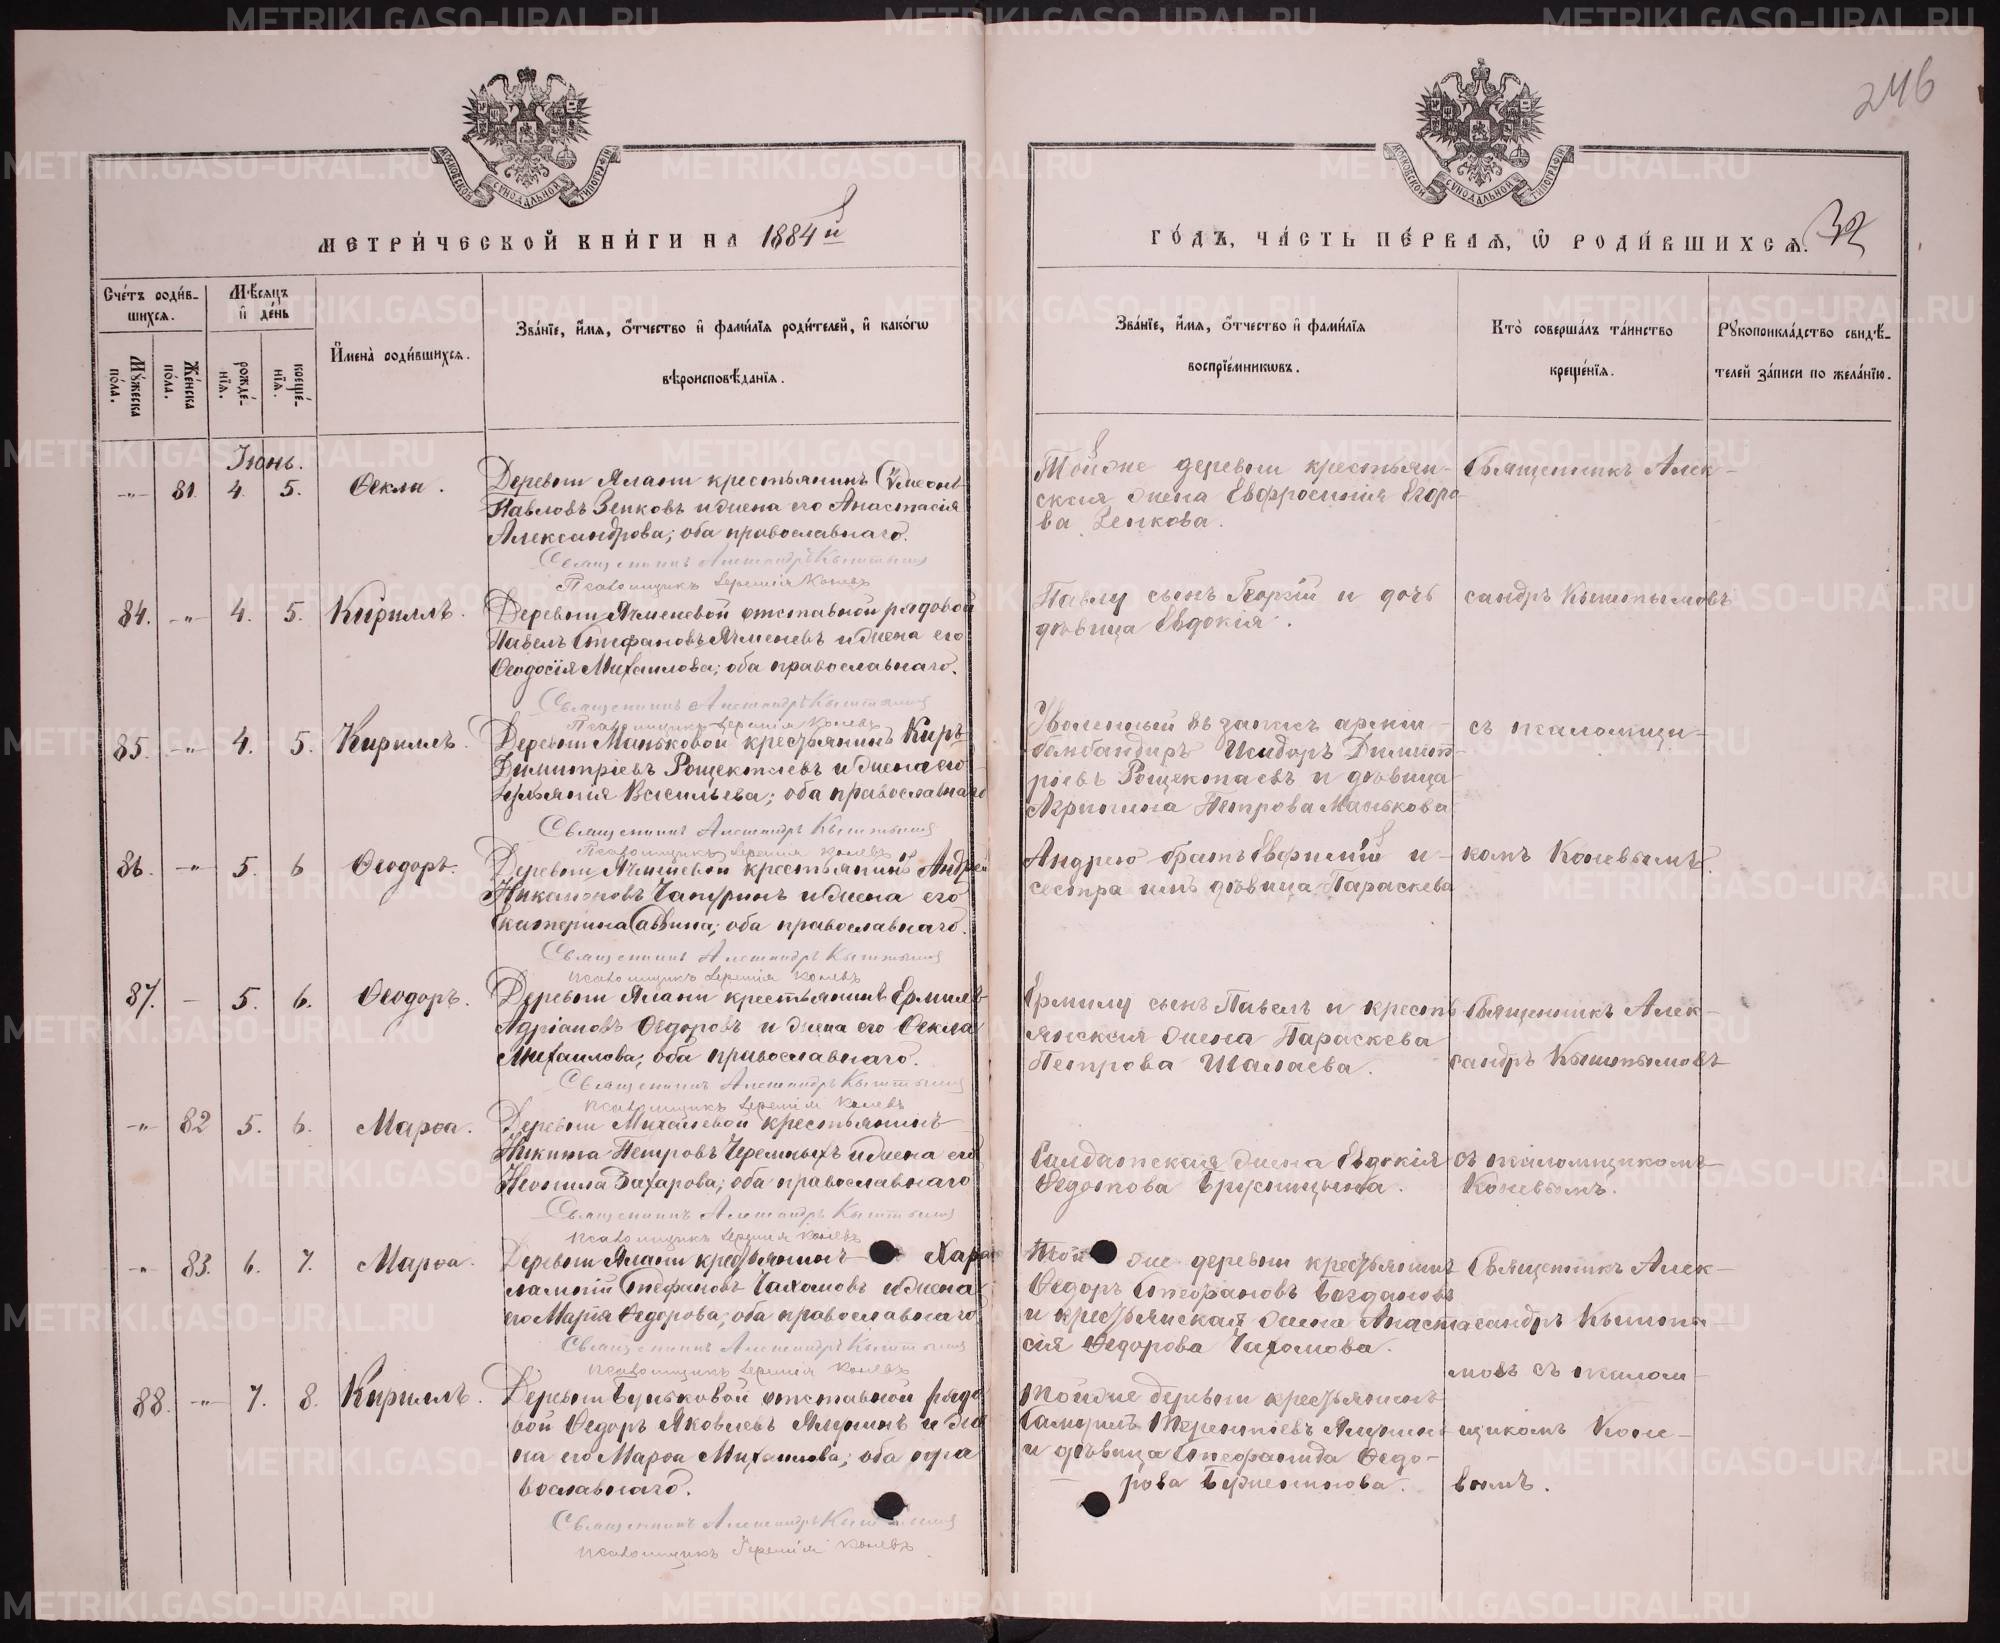 246
МОСКОВСКОЙ СѴНОДАЛЬНОЙ ТИПОГРАФІИ
МОСКОВСКОЙ СѴНОДАЛЬНОЙ ТИПОГРАФІИ
МЕТРИ́ЧЕСКОЙ КНИ́ГИ НА 1884й
ГО́ДЪ, ЧА́СТЬ ПЕ́РВАѦ, Ѡ РОДИ́ВШИХСѦ.
Сче́тъ роди́в-
шихсѧ.
Мѣ́сѧцъ
и҆ де́нь
Мꙋ́жеска
по́ла.
Же́нска
по́ла.
рожде́-
нїѧ.
креще́-
нїѧ.
И҆мена̀ роди́вшихсѧ.
Зва́нїе, и҆́мѧ, ѻ҆́тчество и҆ фами́лїѧ роди́телей, и҆ како́гѡ
вѣроисповѣ́данїѧ.
Зва́нїе, и҆́мѧ, ѻ҆́тчество и҆ фами́лїѧ
воспрїе́мникѡвъ.
Кто̀ соверша́лъ та́инство
креще́нїѧ.
Рꙋкоприкла́дство свидѣ́-
телей за́писи по жела́нїю.
Іюнь.
-"- 81. 4. 5. Ѳекла.
Деревни Ялани крестьянинъ Сѵмеонъ
Павловъ Зенковъ и жена его Анастасія
Александрова; оба православнаго.
Священникъ Александръ Кыштымовъ
Псаломщикъ Іеремія Коневъ
Тойже деревни крестьян-
ская жена Евфросинія Егоро
ва Зенкова.
Священникъ Алек-
84. -"- 4. 5. Кириллъ.
Деревни Ячменевой отставной рядовой
Павелъ Стефановъ Ячменевъ и жена его
Ѳеодосія Михаилова; оба православнаго.
Священникъ Александръ Кыштымовъ
Псаломщикъ Іеремія Коневъ
Павлу сынъ Георгій и дочь
дѣвица Евдокія.
сандръ Кыштымовъ
85. -"- 4. 5. Кириллъ.
Деревни Маньковой крестьянинъ Киръ
Димитріевъ Рощектаевъ и жена его
Васильева; оба православнаго
Священникъ Александръ Кыштымовъ
Псаломщикъ Іеремія Коневъ
Уволенный въ запасъ арміи
бомбандиръ Исидоръ Димит-
ріевъ Рощектаевъ и дѣвица
Агрипина Петрова Манькова
съ псаломщи-
86. -"- 5. 6 Ѳеодоръ.
Деревни Ячменевой крестьянинъ Андрей
Никаноровъ Чапуринъ и жена его
Екатерина Саввина; оба православнаго.
Священникъ Александръ Кыштымовъ
Псаломщикъ Іеремія Коневъ
Андрею братъ Евфимій и
сестра имъ дѣвица Параскева
комъ Коневымъ.
87. - 5. 6. Ѳеодоръ.
Деревни Ялани крестьянинъ Ермилъ
Адріановъ Ѳедоровъ и жена его Ѳекла
Михаилова; оба православнаго.
Священникъ Александръ Кыштымовъ
Псаломщикъ Іеремія Коневъ
Ермилу сынъ Павелъ и кресть
янская жена Параскева
Петрова Шалаева.
Священникъ Алек-
сандръ Кыштымовъ
-"- 82 5. 6. Марѳа.
Деревни крестьянинъ
Никита Петровъ Черемныхъ и жена его
Неонила Захарова; оба православнаго
Священникъ Александръ Кыштымовъ
Псаломщикъ Іеремія Коневъ
Салдатская жена Евдокія
Ѳедотова Брусницына.
съ псаломщикомъ
Коневымъ.
-"- 83. 6. 7. Марѳа.
Деревни Ялани крестьянинъ Хара
лампій Стефановъ Чахомовъ и жена
его Марія Ѳедорова; оба православнаго
Священникъ Александръ Кыштымовъ
Псаломщикъ Іеремія Коневъ
Той же деревни крестьянинъ
Ѳедоръ Стефановъ Богдановъ
и крестьянская жена Анаста
сія Ѳедорова Чахомова.
Священникъ Алек-
сандръ Кышты-
мовъ съ псалом-
88. -"- 7. 8. Кириллъ.
Деревни Буньковой отставной рядо
вой Ѳедоръ Яковлевъ и же
на его Марѳа Михаилова; оба пра
вославнаго.
Священникъ Александръ Кыштымовъ
Псаломщикъ Іеремія Коневъ
Тойже деревни крестьянинъ
Терентіевъ
и дѣвица Стефанида Ѳедо-
рова
щикомъ Коне-
вымъ.